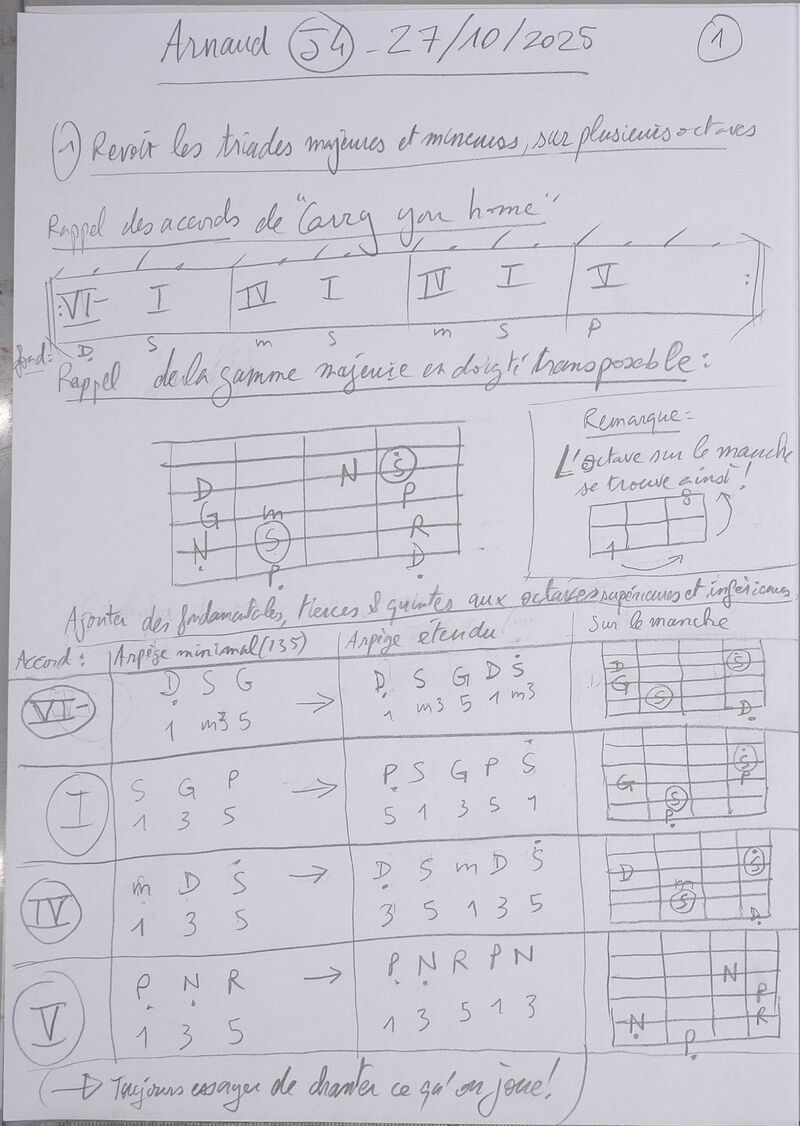 Arnaud J4 - 27/10/2025
1
1) Revoir les triades majeures et mineures, sur plusieurs octaves
Rappel des accords de "Carry you home"
VI- I IV I IV I V
fond: D S m S m S P
Rappel de la gamme majeure en doigté transposable :
N S
D P
G m R
N S D
P
Remarque =
L'octave sur le manche
se trouve ainsi !
8
1
Ajouter des fondamentales, tierces & quintes aux octaves supérieures et inférieures
Accord : Arpège minimal (135) Arpège étendu Sur le manche
VI-
D S G → D S G D S
1 m3 5 1 m3 5 1 m3
D S
G S D
I
S G P → P S G P S
1 3 5 5 1 3 5 1
S
G P
S
P
IV
m D S → D S m D S
1 3 5 3 5 1 3 5
D S
m
S D
V
P N R → P N R P N
1 3 5 1 3 5 1 3
N
P
N R
P
→ Toujours essayer de chanter ce qu'on joue !